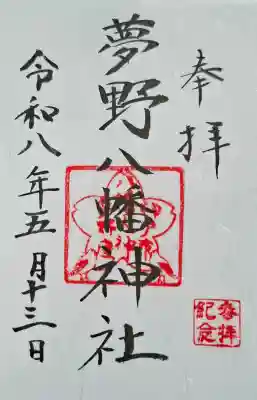 奉拝
夢野八幡神社
令和八年五月十三日
参拝
紀念